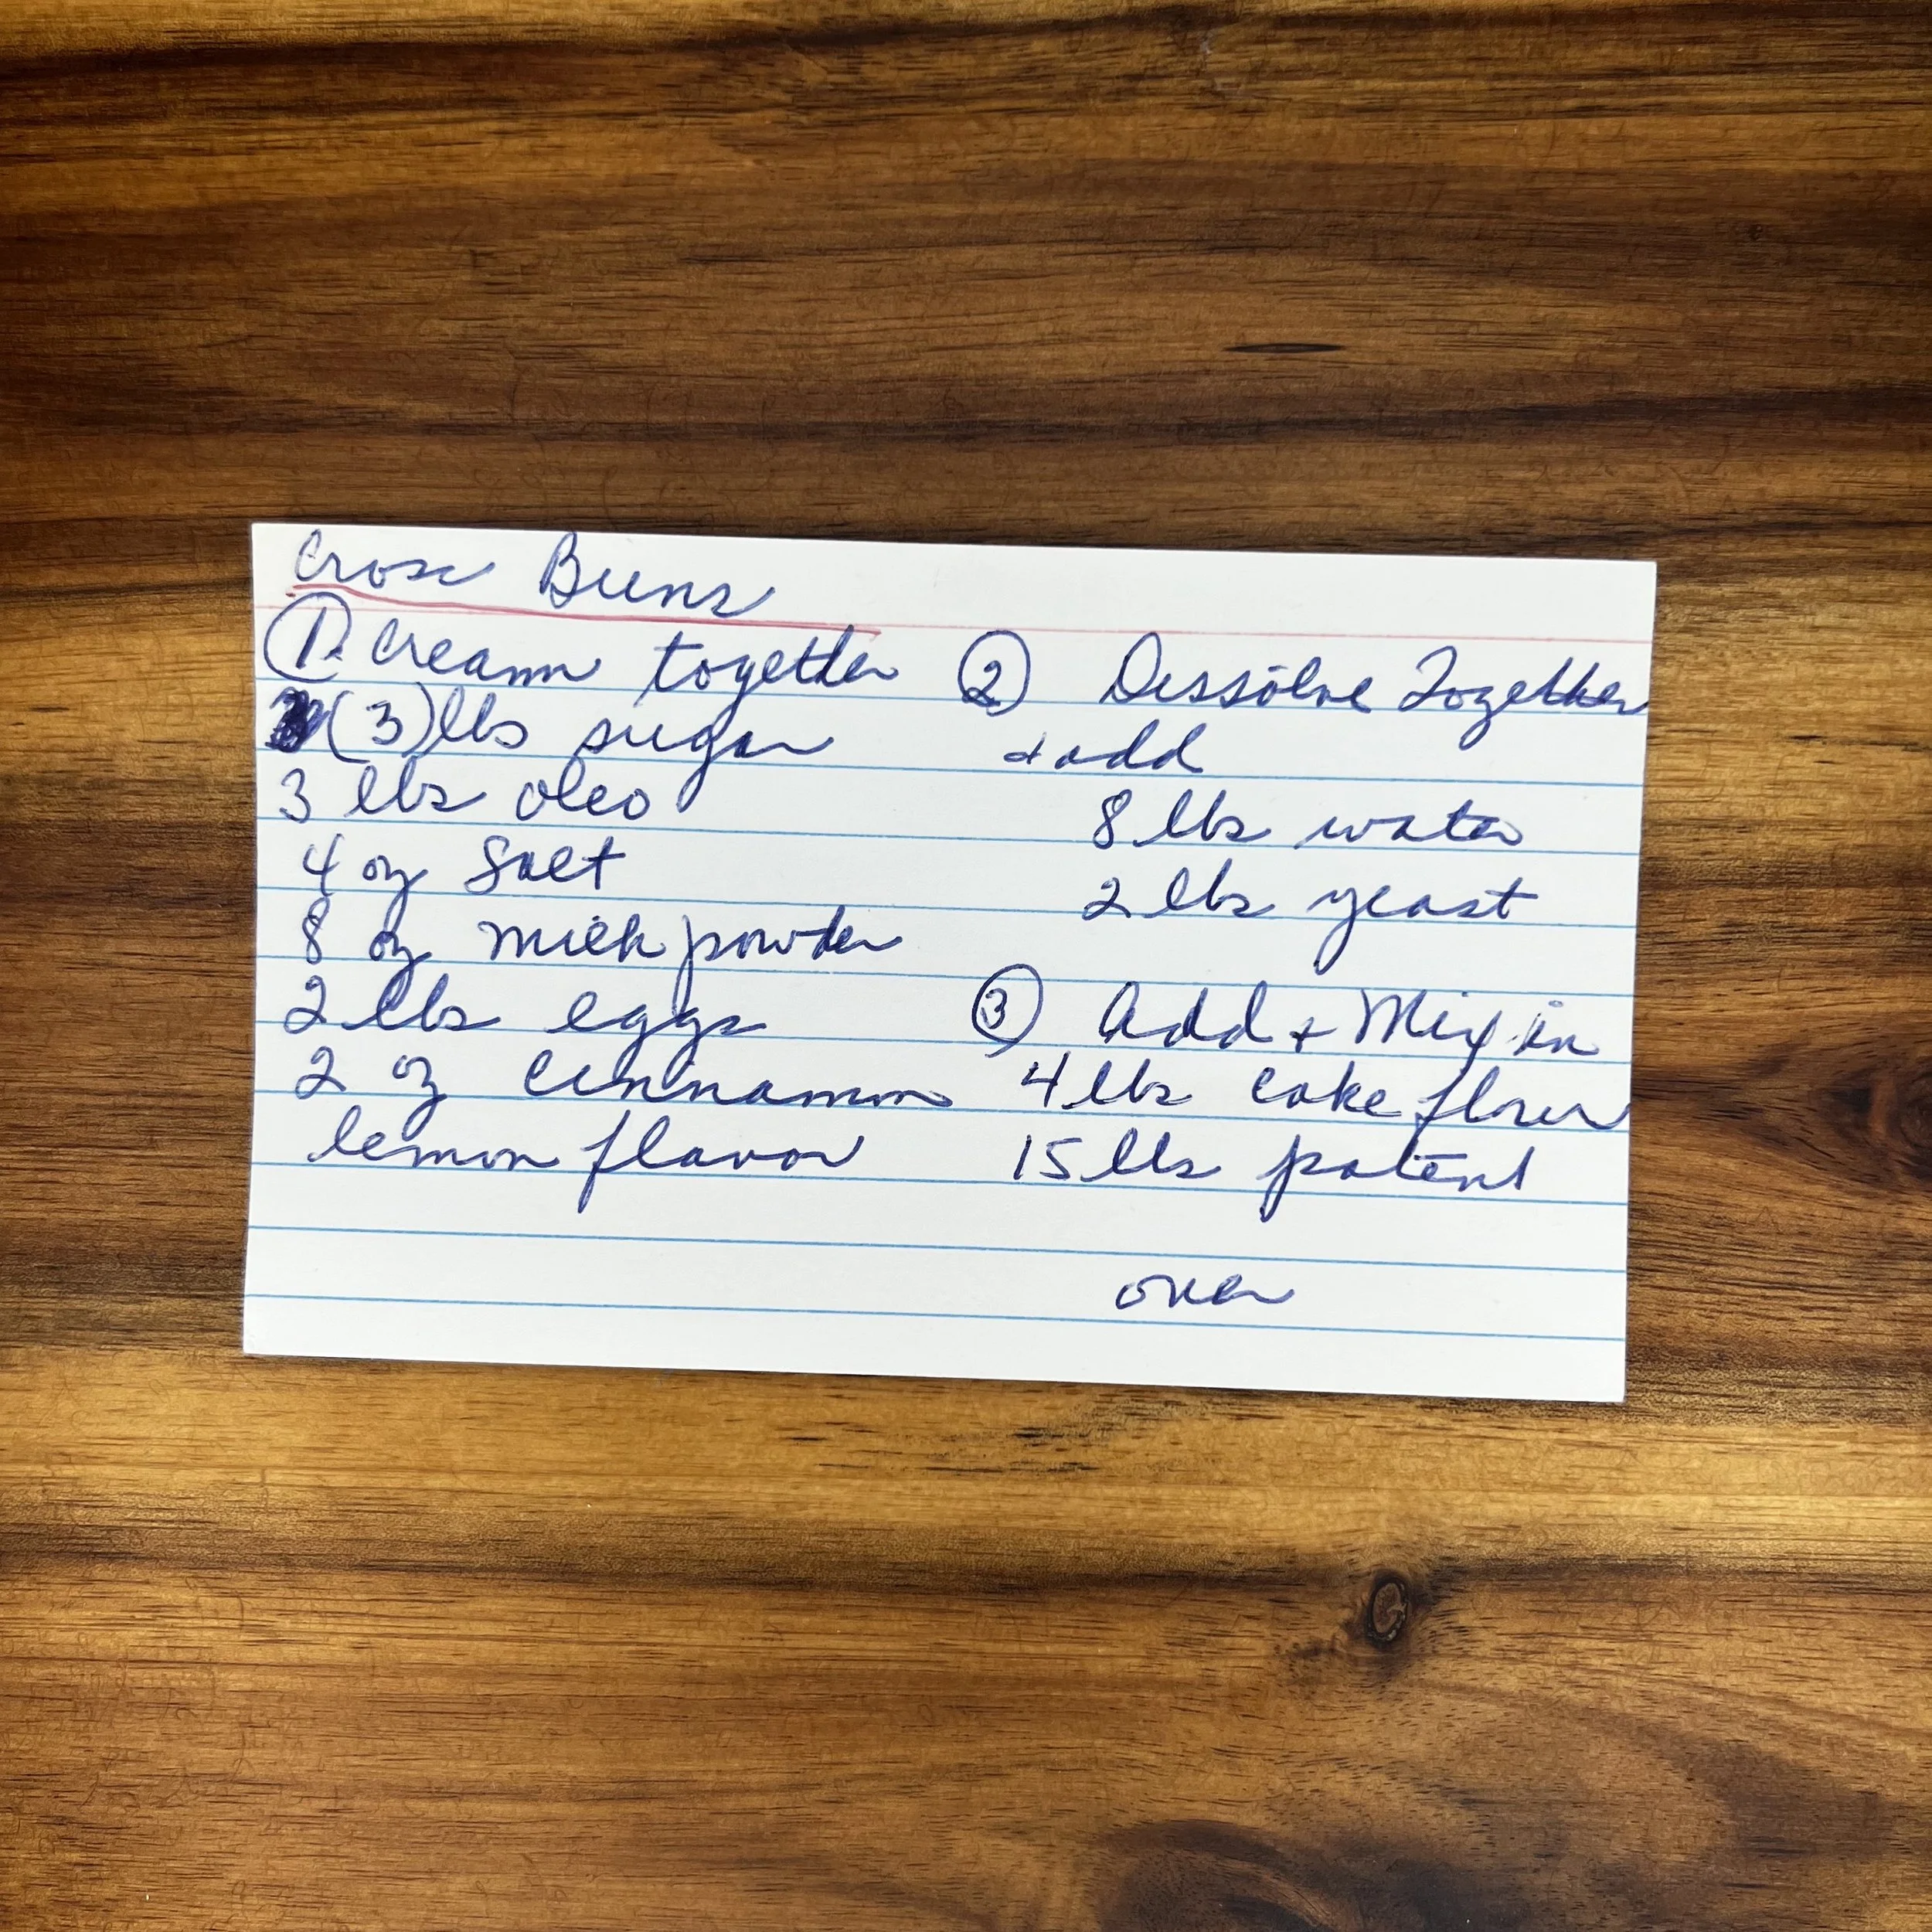 Cross Buns
1. Cream together
(3) lbs sugar
3 lbs oleo
4 oz Salt
8 oz milk powder
2 lbs eggs
2 oz cinnamon
lemon flavor
2 Dissolve Together
+ add
8 lbs water
2 lbs yeast
3 Add + Mix in
4 lbs cake flour
15 lbs patent
over